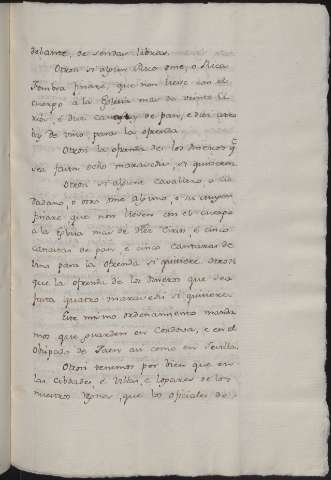 delante, de sendas libras.
Otrosi si algun Rico ome, o Rica
Fembra finare, que non lieve con el
cuerpo á la Eglesia mas de veinte Ci-
rios, é diez de pan, é diez
de vino para la ofrenda
Otrosi la ofrenda de los dineros q̃
sea fasta ocho maravedis, si quisieren
Otrosi si algunt Cavallero, o Ci-
dadano, o otro ome alguno, o su muger
finare que non lieven con el cuerpo
á la Eglesia mas de diez Cirios, é cinco
canastas de pan é cinco Cantaras de
vino para la ofrenda si quisiere. otrosi
que la ofrenda de los dineros que sea
fasta quatro maravedis si quisiere.
Este mismo ordenamiento manda-
mos que guarden en Cordova, e en el
Obispado de Jaen asi como en Sevilla.
Otrosi tenemos por bien que en
las Cibdades, é Villas, e Logares de los
nuestros Regnos, que los oficiales de